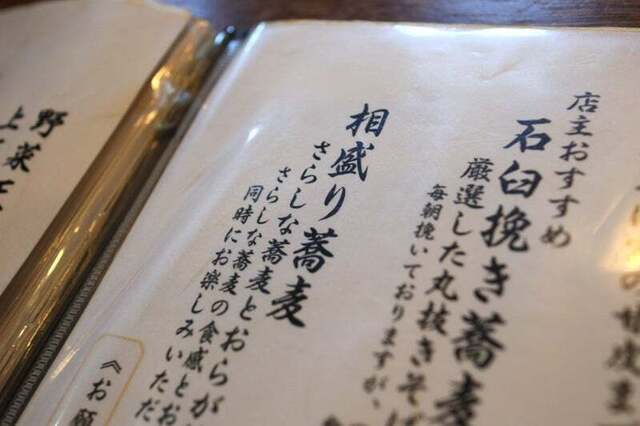 店主おすすめ
石臼挽き蕎麦
厳選した丸抜きそば
毎朝挽いておりますが、
相盛り蕎麦
さらしな蕎麦とおらが
さらしな蕎麦の食感とお
同時にお楽しみいただ
《お願
野菜天
上